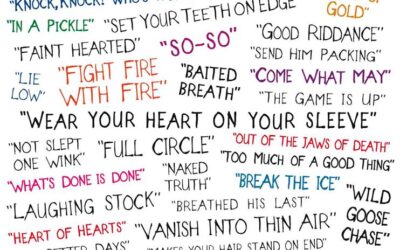 "KNOCK, KNOCK! WHO'S
GOLD"
"IN A PICKLE"
"SET YOUR TEETH ON EDGE"
"FAINT HEARTED"
"SO-SO"
"GOOD RIDDANCE"
"SEND HIM PACKING"
"LIE
LOW"
"FIGHT FIRE
WITH FIRE"
"BAITED
BREATH"
"COME WHAT MAY"
"THE GAME IS UP"
"WEAR YOUR HEART ON YOUR SLEEVE"
"NOT SLEPT
ONE WINK"
"FULL CIRCLE"
"OUT OF THE JAWS OF DEATH"
"TOO MUCH OF A GOOD THING"
"WHAT'S DONE IS DONE"
"NAKED
TRUTH"
"BREAK THE ICE"
"WILD
GOOSE
CHASE"
"LAUGHING STOCK"
"BREATHED HIS LAST"
"HEART OF HEARTS"
"VANISH INTO THIN AIR"
DAYS"
"MAKES YOUR HAIR STAND ON END"